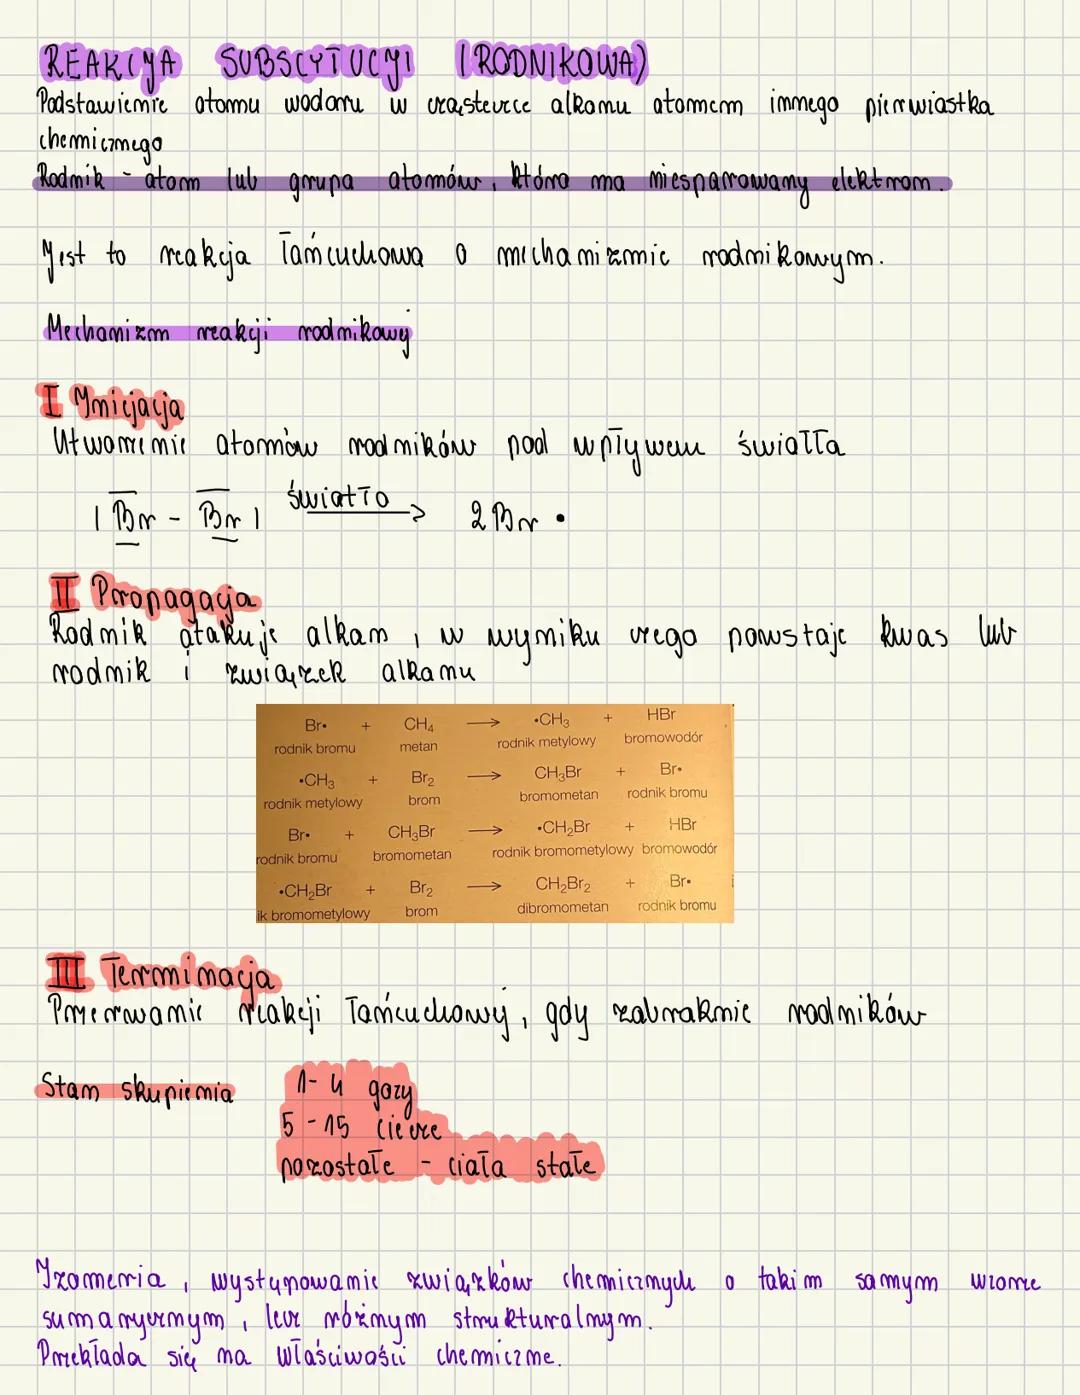 REAKCJA SUBSCYTUCJI (RODNIKOWA)
Podstawienie atomu wodoru w cząsteczce alkanu atomem innego pierwiastka
chemicznego
Rodnik - atom lub grupa atomów, która ma niesparowany elektron.
Jest to reakcja łańcuchowa o mechanizmie rodnikowym.
Mechanizm reakcji rodnikowej
I Inicjacja
Utworzenie atomów rodników pod wpływem światła
|Br - Br| światło → 2Br •
II Propagacja
Rodnik atakuje alkan, w wyniku czego powstaje kwas lub
rodnik i związek alkanu
Br• + CH₄ → •CH₃ + HBr
rodnik bromu metan rodnik metylowy bromowodór
•CH₃ + Br₂ → CH₃Br + Br•
rodnik metylowy brom bromometan rodnik bromu
Br• + CH₃Br → •CH₂Br + HBr
rodnik bromu bromometan rodnik bromometylowy bromowodór
•CH₂Br + Br₂ → CH₂Br₂ + Br•
ik bromometylowy brom dibromometan rodnik bromu
III Terminacja
Przerwanie reakcji łańcuchowej, gdy zabraknie rodników
Stan skupienia 1-4 gazy
5-15 ciecze
pozostałe - ciała stałe
Izomeria, występowanie związków chemicznych o takim samym wzorze
sumarycznym, lecz różnym strukturalnym.
Przekłada się na właściwości chemiczne.